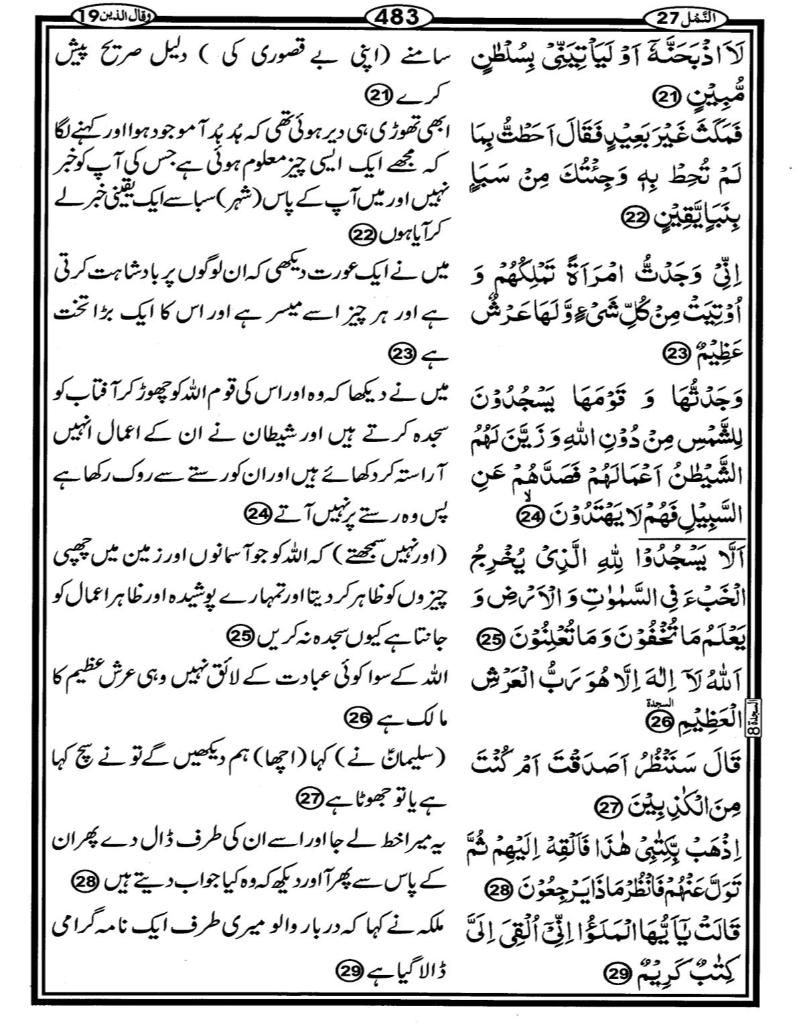 النَّمْل 27
483
وقال الذين 19
لَاَاذْبَحَنَّهٗۤ اَوْ لَيَاْتِيَنِّيْ بِسُلْطٰنٍ
مُّبِيْنٍ 21
فَمَكَثَ غَيْرَ بَعِيْدٍ فَقَالَ اَحَطْتُّ بِمَا
لَمْ تُحِطْ بِهٖ وَجِئْتُكَ مِنْ سَبَاٍ
بِنَبَاٍ يَّقِيْنٍ 22
اِنِّيْ وَجَدْتُّ امْرَاَةً تَمْلِكُهُمْ وَ
اُوْتِيَتْ مِنْ كُلِّ شَيْءٍ وَّلَهَا عَرْشٌ
عَظِيْمٌ 23
وَجَدْتُّهَا وَ قَوْمَهَا يَسْجُدُوْنَ
لِلشَّمْسِ مِنْ دُوْنِ اللهِ وَ زَيَّنَ لَهُمُ
الشَّيْطٰنُ اَعْمَالَهُمْ فَصَدَّهُمْ عَنِ
السَّبِيْلِ فَهُمْ لَا يَهْتَدُوْنَ 24
اَلَّا يَسْجُدُوْا لِلّٰهِ الَّذِيْ يُخْرِجُ
الْخَبْءَ فِي السَّمٰوٰتِ وَ الْاَرْضِ وَ
يَعْلَمُ مَا تُخْفُوْنَ وَ مَا تُعْلِنُوْنَ 25
اَللهُ لَاۤ اِلٰهَ اِلَّا هُوَ رَبُّ الْعَرْشِ
الْعَظِيْمِ السجدة 26
قَالَ سَنَنْظُرُ اَصَدَقْتَ اَمْ كُنْتَ
مِنَ الْكٰذِبِيْنَ 27
اِذْهَبْ بِّكِتٰبِيْ هٰذَا فَاَلْقِهْ اِلَيْهِمْ ثُمَّ
تَوَلَّ عَنْهُمْ فَانْظُرْ مَاذَا يَرْجِعُوْنَ 28
قَالَتْ يٰۤاَيُّهَا الْمَلَؤُا اِنِّيْۤ اُلْقِيَ اِلَيَّ
كِتٰبٌ كَرِيْمٌ 29
السجدة 8
سامنے (اپنی بے قصوری کی ) دلیل صریح پیش
کرے 21
ابھی تھوڑی ہی دیر ہوئی تھی کہ ہُد ہُد آ موجود ہوا اور کہنے لگا
کہ مجھے ایک ایسی چیز معلوم ہوئی ہے جس کی آپ کو خبر
نہیں اور میں آپ کے پاس (شہر) سبا سے ایک یقینی خبر لے
کر آیا ہوں 22
میں نے ایک عورت دیکھی کہ ان لوگوں پر بادشاہت کرتی
ہے اور ہر چیز اسے میسر ہے اور اس کا ایک بڑا تخت
ہے 23
میں نے دیکھا کہ وہ اور اس کی قوم اللہ کو چھوڑ کر آفتاب کو
سجدہ کرتے ہیں اور شیطان نے ان کے اعمال انہیں
آراستہ کر دکھائے ہیں اور ان کو رستے سے روک رکھا ہے
پس وہ رستے پر نہیں آتے 24
(اور نہیں سمجھتے) کہ اللہ کو جو آسمانوں اور زمین میں چھپی
چیزوں کو ظاہر کر دیتا اور تمہارے پوشیدہ اور ظاہر اعمال کو
جانتا ہے کیوں سجدہ نہ کریں 25
اللہ کے سوا کوئی عبادت کے لائق نہیں وہی عرش عظیم کا
مالک ہے 26
(سلیمانؑ نے) کہا (اچھا) ہم دیکھیں گے تو نے سچ کہا
ہے یا تو جھوٹا ہے 27
یہ میرا خط لے جا اور اسے ان کی طرف ڈال دے پھر ان
کے پاس سے پھر آ اور دیکھ کہ وہ کیا جواب دیتے ہیں 28
ملکہ نے کہا کہ دربار والو میری طرف ایک نامہ گرامی
ڈالا گیا ہے 29